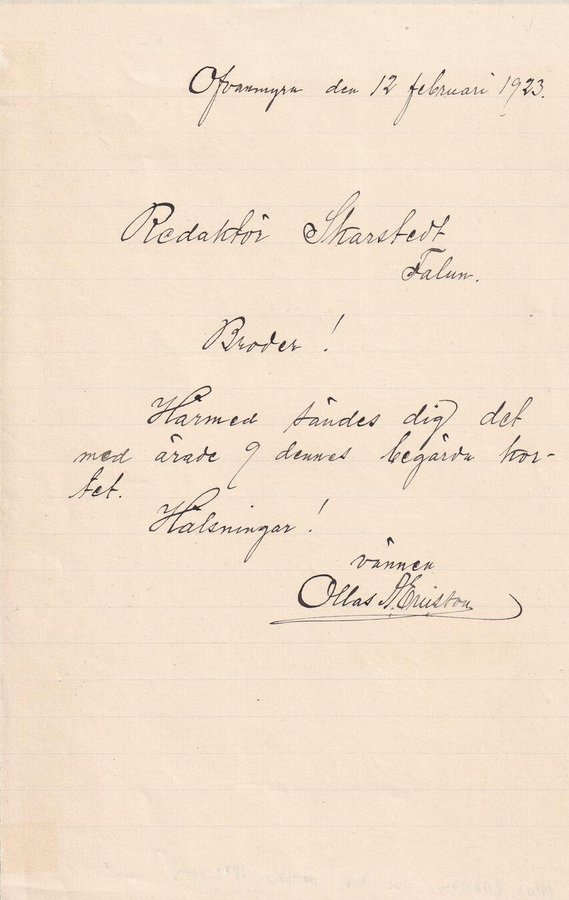 Ofvanmyra den 12 februari 1923.
Redaktör Skarstedt
Falun.
Broder!
Härmed sändes dig det
med ärade 9 dennes begärda kor-
tet.
Hälsningar!
vännen
Ollas A. Ericson